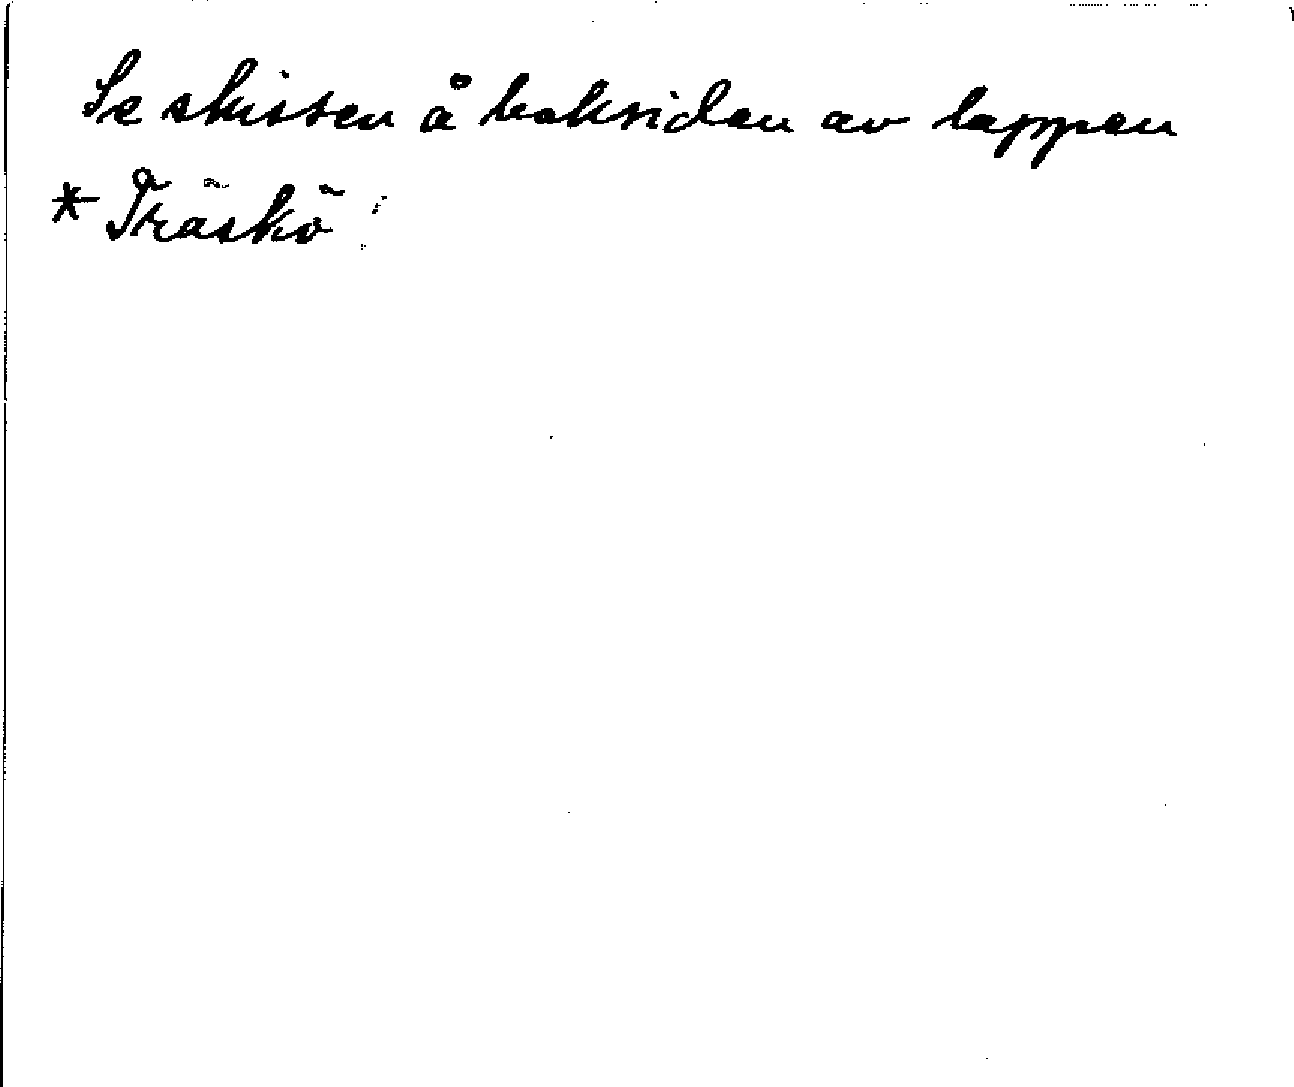 Se skissen å baksidan av lappen
* Träskö